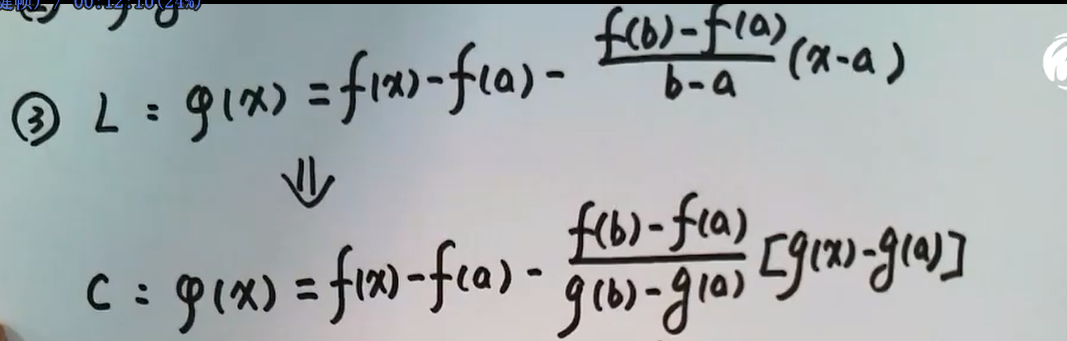 00:12:10(24%)
③ L : φ(x) = f(x) - f(a) - \frac{f(b) - f(a)}{b - a} (x - a)
⇓
C : φ(x) = f(x) - f(a) - \frac{f(b) - f(a)}{g(b) - g(a)} [g(x) - g(a)]